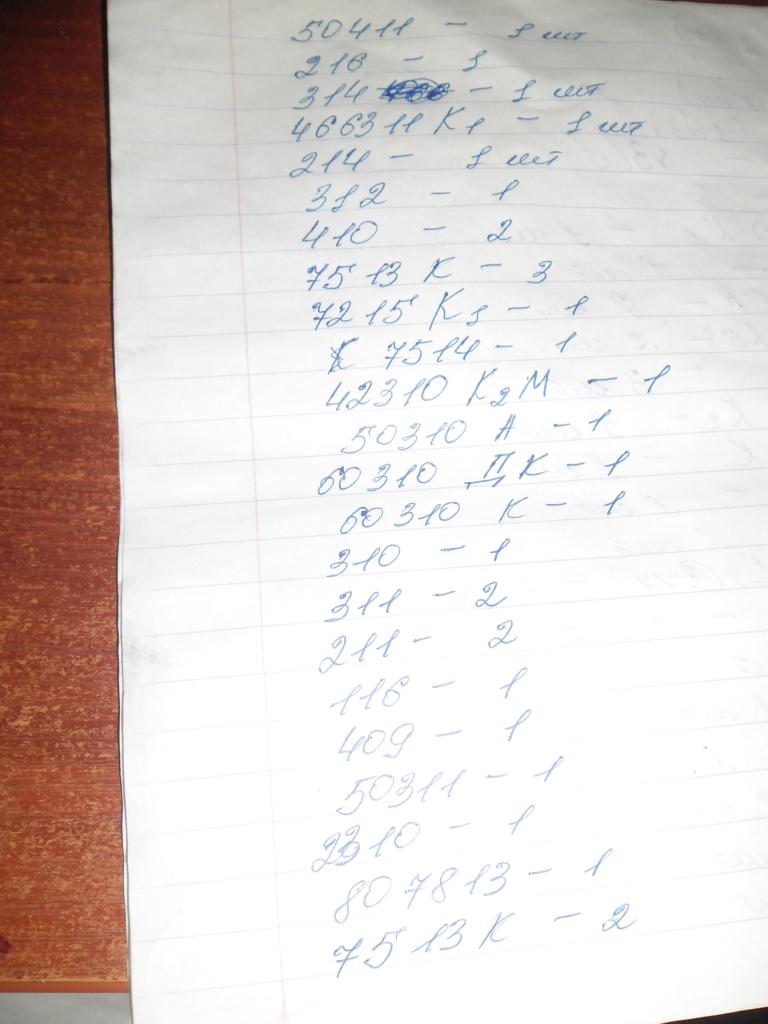 50411 - 1 шт
216 - 1
314 - 1 шт
466311 К1 - 1 шт
214 - 1 шт
312 - 1
410 - 2
7513 К - 3
7215 К1 - 1
К 7514 - 1
42310 К2М - 1
50310 А - 1
60310 ДК - 1
60310 К - 1
310 - 1
311 - 2
211 - 2
116 - 1
409 - 1
50311 - 1
2310 - 1
807813 - 1
7513К - 2